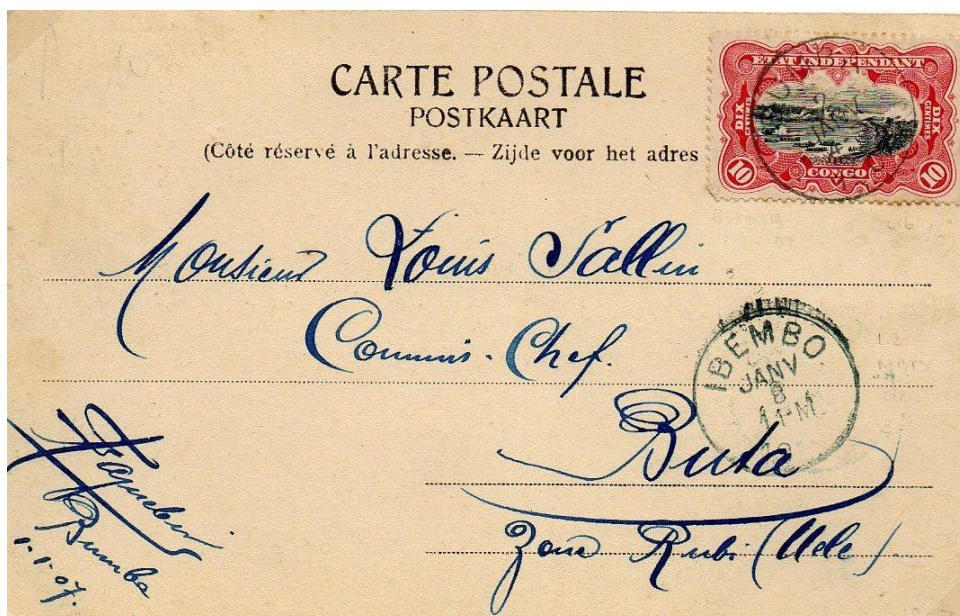 CARTE POSTALE
POSTKAART
(Côté réservé à l'adresse. — Zijde voor het adres
ETAT INDEPENDANT
DIX CENTIMES
DIX CENTIMES
10 CONGO 10
JANV
Monsieur Louis Sallin
Commis-Chef.
IBEMBO
JANV
8
11-M
Buta
Zone Rubi (Uele)
Bumba
1-1-07.